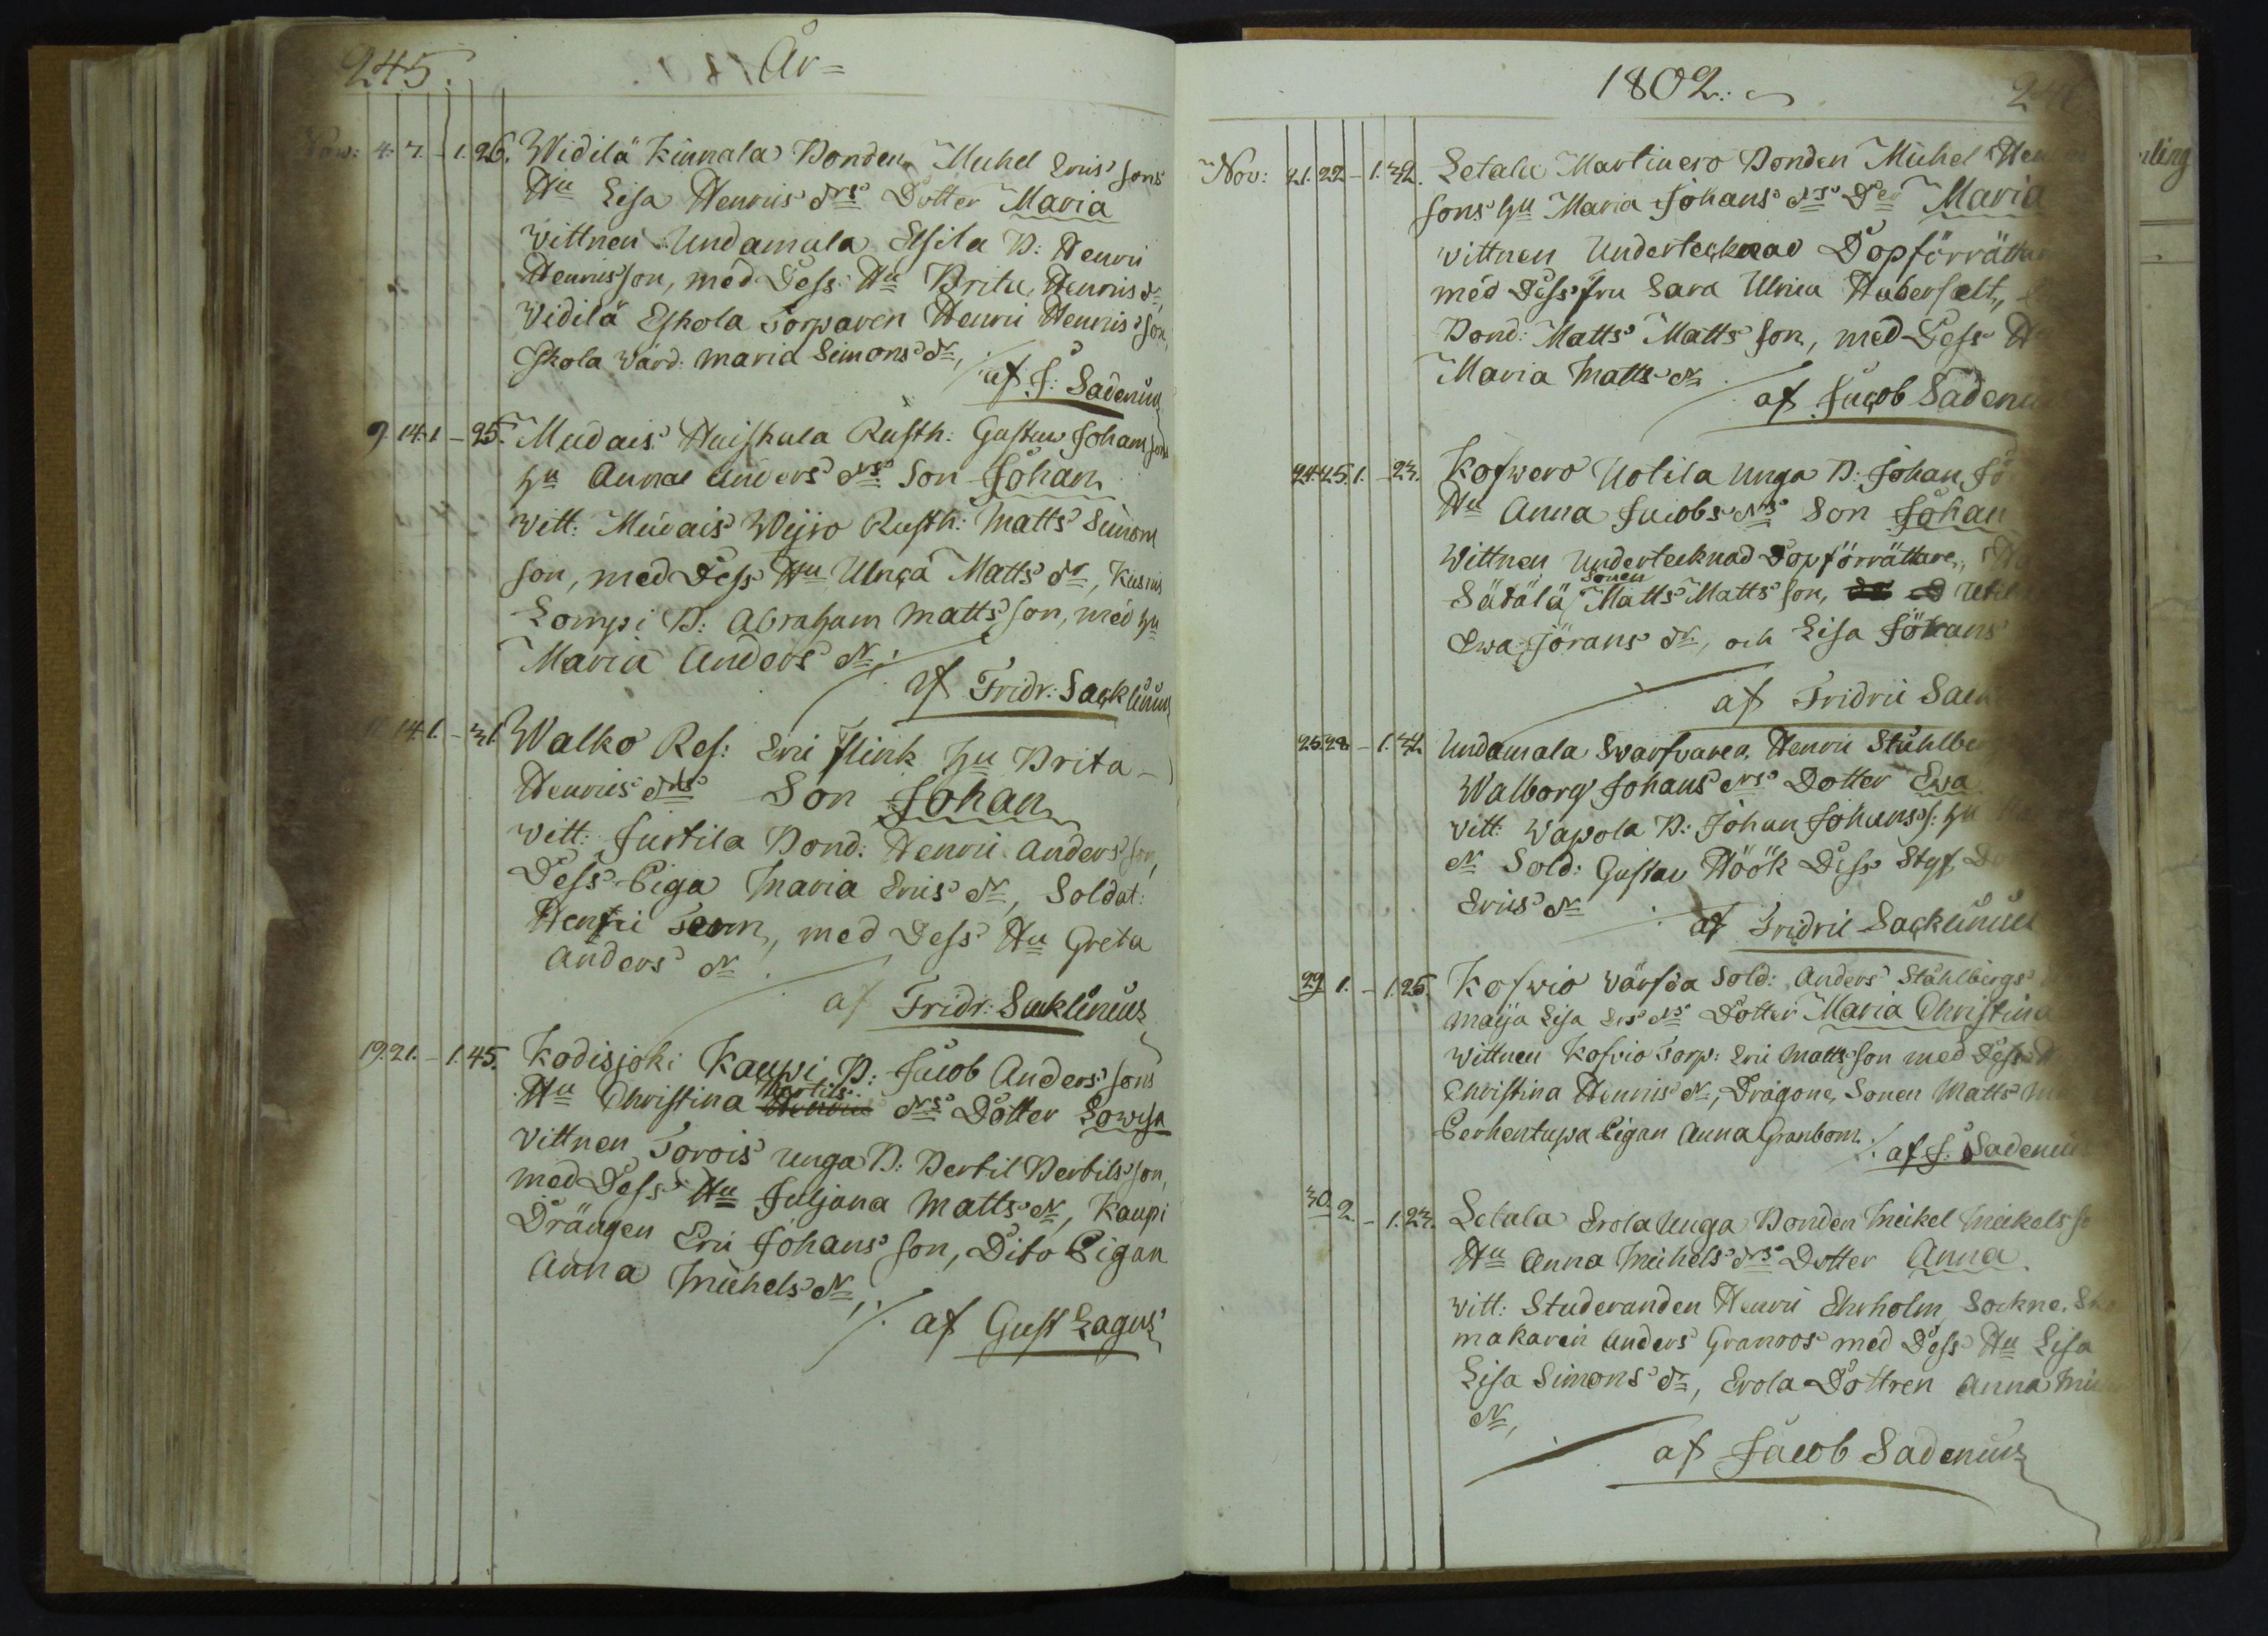 245.
År=
Nov: 4. 7. – 1. 26. Widilä Kinnala Bonden Michel Erics sons
Hu Lisa Henrics drs Dotter Maria
Wittnen Undamala Elsila B: Henric
Henricsson, med Dess Hu Brita Henrics dr,
Vidilä Eskola Torparen Henric Henrics son,
Eskola Värd: Maria Simons dr,
af J: Sadenius
9. 14. 1 – 25. Mudais Huiskula Rusth: Gustav Johanssons
hu Anna Anders drs Son Johan
witt: Mudais Weijro Rusth: Matts Simon
son, med Dess Hu Ulrica Matts dr, Kusnis
Lompi B: Abraham Matts son, med hu
Maria Anders dr
af Fridr: Sacklinius
14. 1. – 31. Walko Res: Eric Flink hu Brita
Henrics drs Son Johan
witt: Jurtila Bond: Henric Anders son,
Dess Piga Maria Erics dr, Soldat:
Henric Term, med Dess Hu Greta
Anders dr
af Fridr: Sacklinius
19. 21. – 1. 45. Kodisjoki Kaupi B: Jacob Anders sons
Bertils
Hu Christina Henrics drs Dotter Lowisa
Vittnen Torois unga B: Bertil Bertilsson,
med Dess Hu Juljana Matts dr, Kaupi
Drängen Eric Johans son, Dito Pigan
Anna Michels dr,
af Gust Lagus
1802.
246
Nov: 21. 22 – 1. 32. Letala Martinero Bonden Michel Hen
sons hu Maria Johans drs Der Maria
vittnen Undertecknad Dopförrättar
med Dess fru Sara Ulrica Haberfelt,
Bond: Matts Matts son, med Dess H
Maria Matts dr
af Jacob Sadenius
24. 25. 1. – 23. Kofwero Uotila unga B: Johan Jo
Hu Anna Jacobs drs Son Johan
Wittnen Undertecknad Dopförrättare,
Sonen
Sädälä Matts Matts son,
Ewa Jörans dr, och Lisa Johans
af Fridric Sack
25. 28 – 1. 34 Undamala Svarfvaren, Henric Ståhlber
Walborg Johans drs Dotter Ewa
vitt: Wapola B: Johan Johans s: hu
dr Sold: Gustav Höök Dess Styf Do
Erics dr
af Fridric Sacklinius
29 1. – 1. 25. Kofwio Värfda Sold: Anders Ståhlbergs
Maija Lisa Ers drs Dotter Maria Christina
wittnen Kofvio Torp: Eric Matts son med Dess H
Christina Henrics dr, Dragone, Sonen Matts M
Perhentupa Pigan Anna Granbom.
af J: Sadenius
30. 2. – 1. 23. Letala Erola Unga Bonden Mickel Mickels so
Hu Anna Michels drs Dotter Anna
witt: Studeranden Henric Ehrholm, Sockne. Sko
makaren Anders Granroos med Dess Hu Lisa
Lisa Simons dr, Erola Dottren Anna Mic
dr,
af Jacob Sadenius